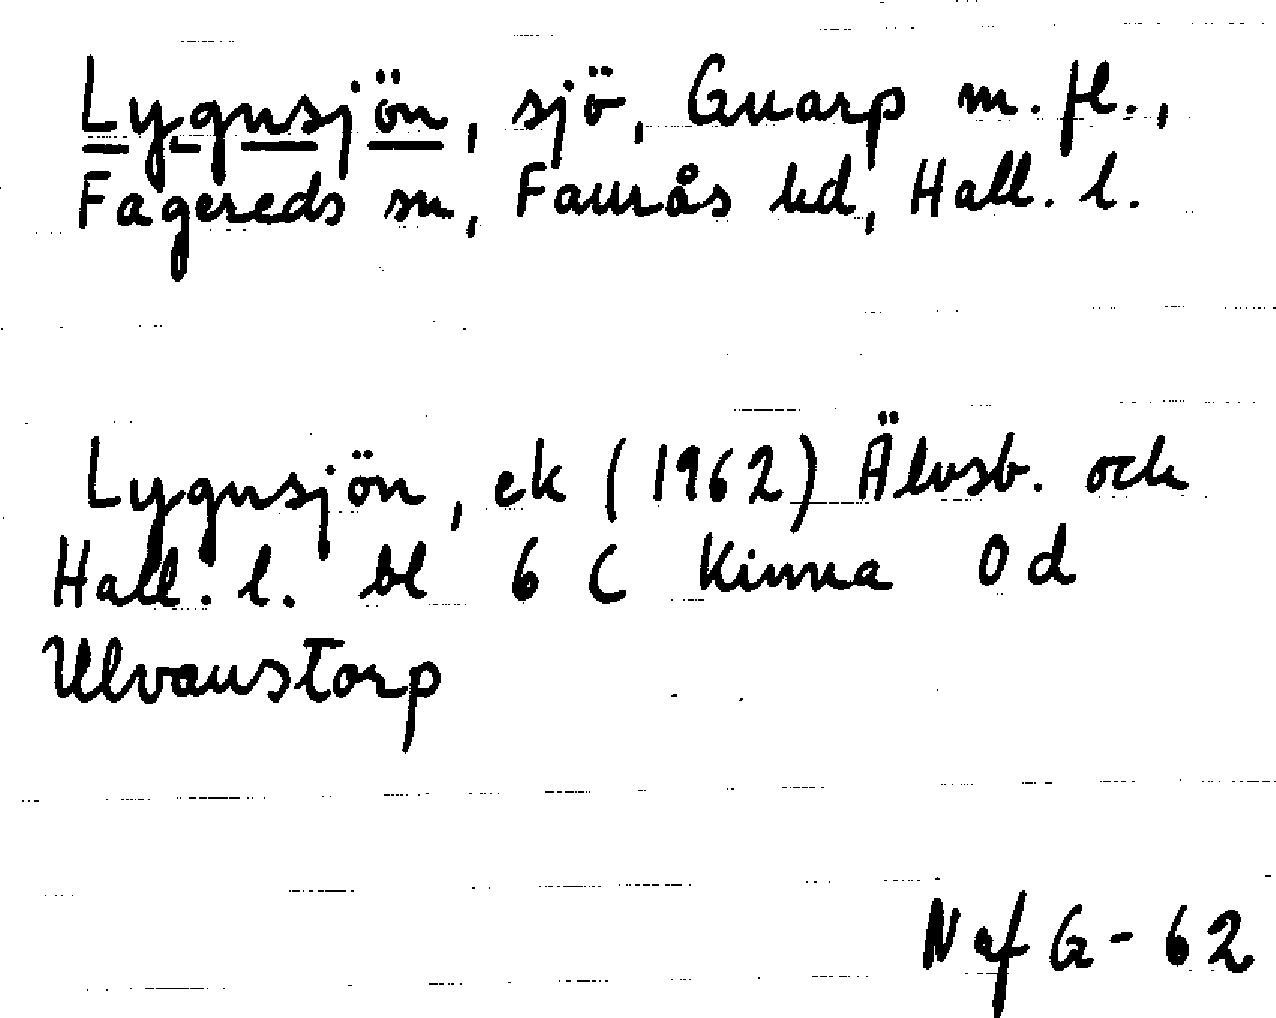 Lygnsjön, sjö, Gnarp m. fl.,
Fagereds sn, Faurås hd, Hall. l.
Lygnsjön, ek (1962) Älvsb. och
Hall. l. bl 6 C Kinna 0d
Ulvanstorp
N af G-62